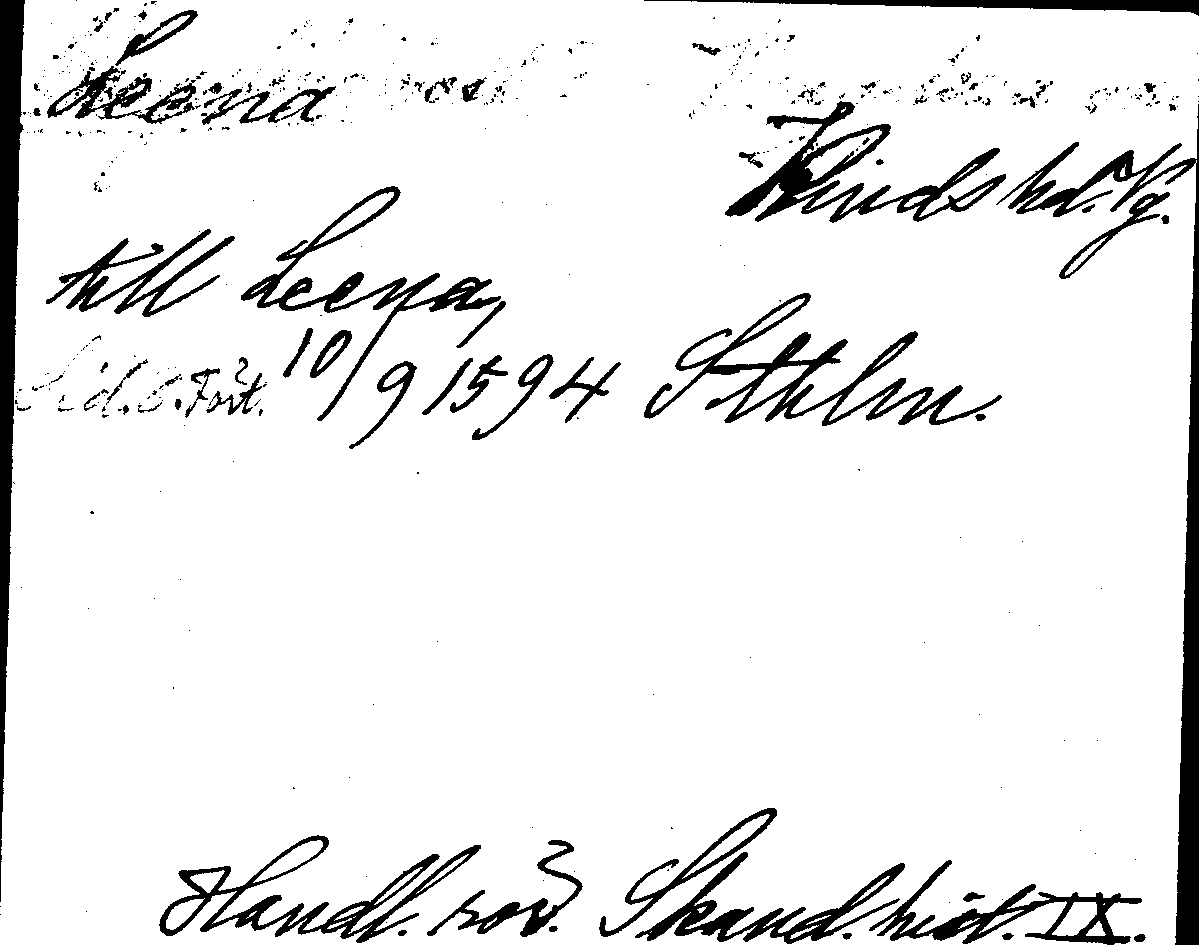 Leena
Kinds hd. Vg.
till Leena,
Sid. 6. Fört. 10/9 1594 Sthlm.
Handl. rör. Skand. hist. IX.